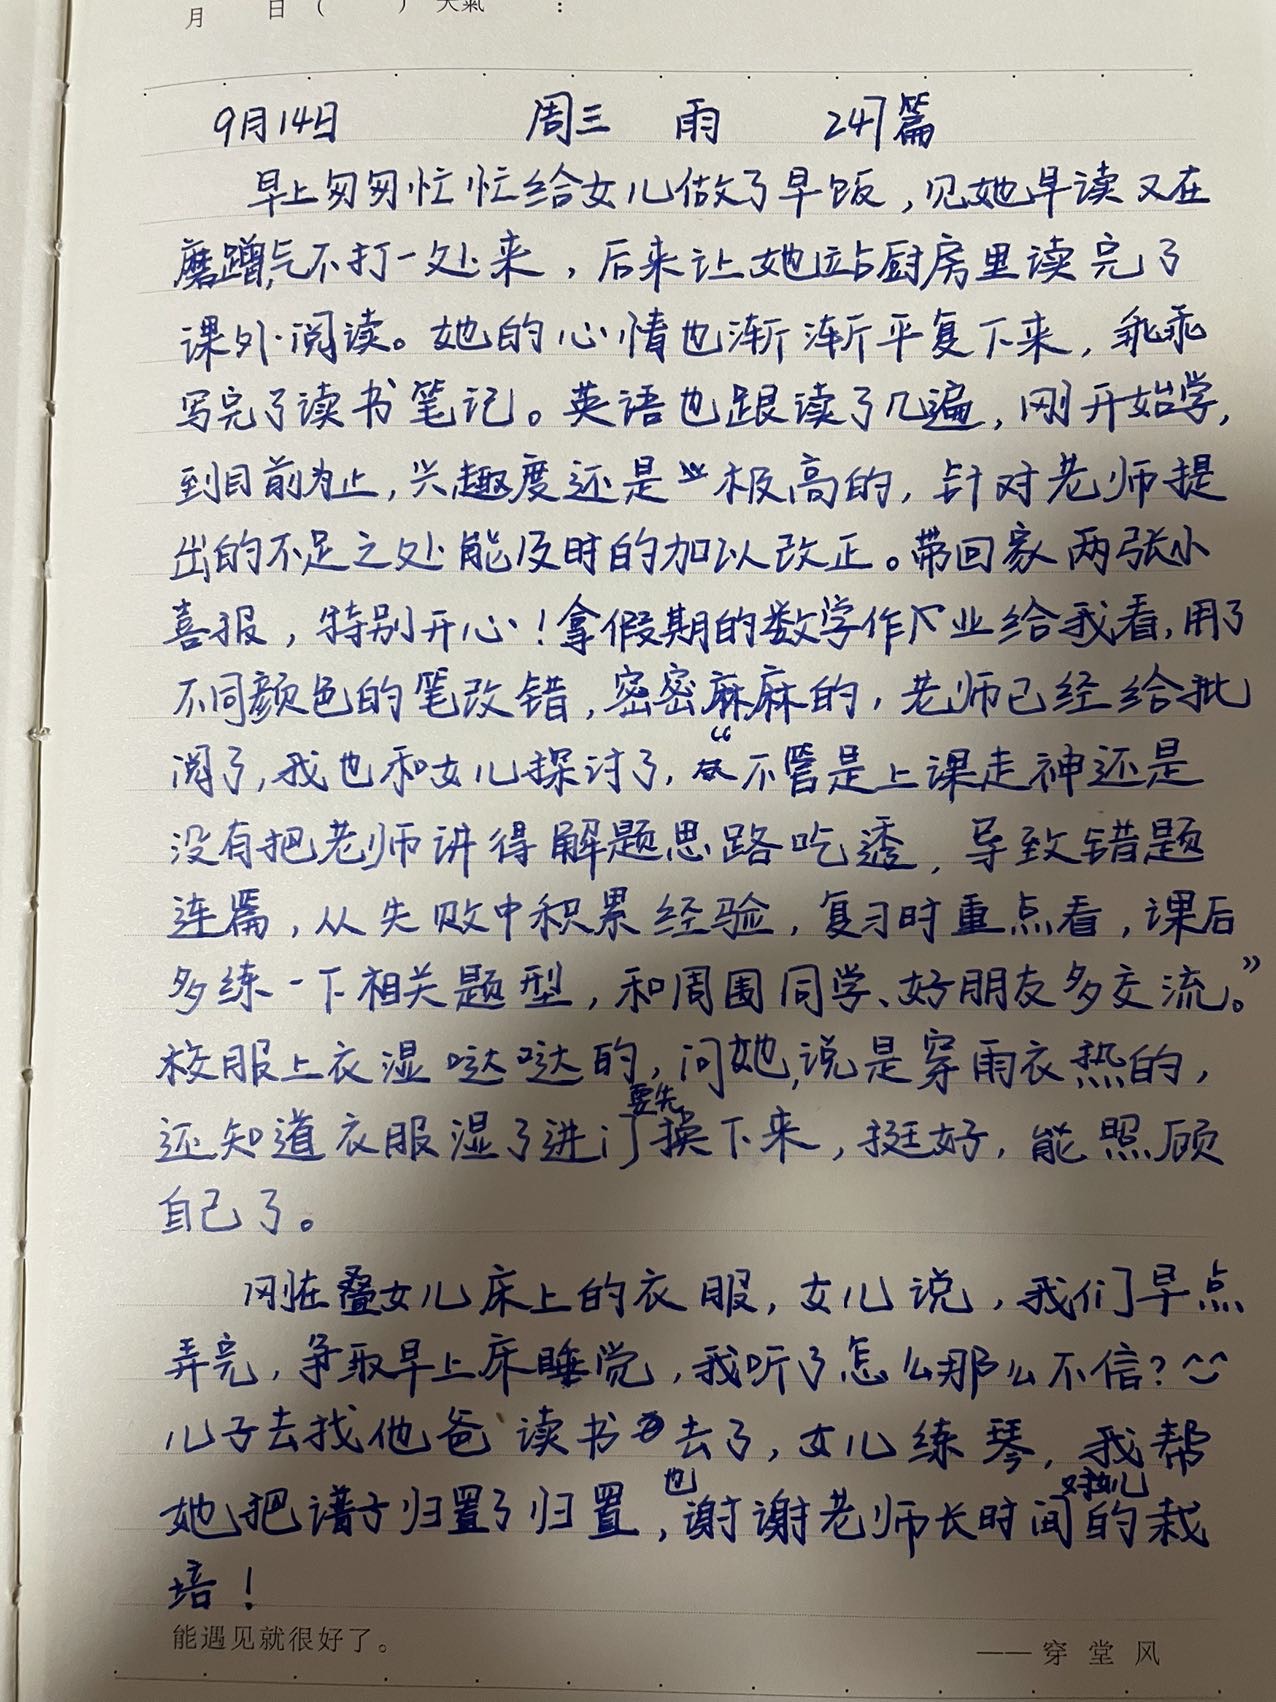 月 日 ( ) 天氣 :
9月14日 周三 雨 247篇
早上匆匆忙忙给女儿做了早饭，见她早读又在
磨蹭，气不打一处来，后来让她站厨房里读完了
课外阅读。她的心情也渐渐平复下来，乖乖
写完了读书笔记。英语也跟读了几遍，刚开始学，
到目前为止，兴趣度还是极高的，针对老师提
出的不足之处能及时的加以改正。带回家两张小
喜报，特别开心！拿假期的数学作业给我看，用了
不同颜色的笔改错，密密麻麻的，老师已经给批
阅了，我也和女儿探讨了，“不管是上课走神还是
没有把老师讲得解题思路吃透，导致错题
连篇，从失败中积累经验，复习时重点看，课后
多练一下相关题型，和周围同学、好朋友多交流。”
校服上衣湿哒哒的，问她，说是穿雨衣热的，
还知道衣服湿了进门要先换下来，挺好，能照顾
自己了。
刚在叠女儿床上的衣服，女儿说，我们早点
弄完，争取早上床睡觉，我听了怎么那么不信？^^
儿子去找他爸读书去了，女儿练琴，我帮
她把谱子归置了归置，也谢谢老师长时间对女儿的栽
培！
能遇见就很好了。
——穿堂风